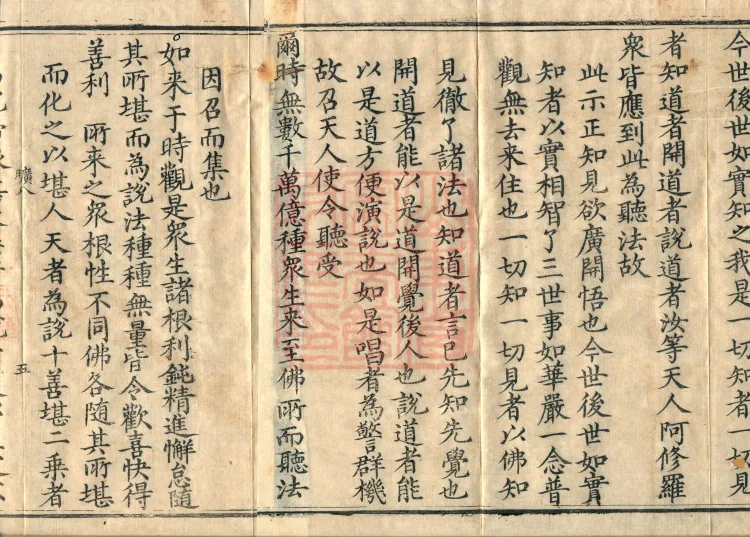 今世後世如實知之我是一切知者一切見
者知道者開道者說道者汝等天人阿修羅
衆皆應到此為聽法故
此示正知見欲廣開悟也今世後世如實
知者以實相智了三世事如華嚴一念普
觀無去来住也一切知一切見者以佛知
見徹了諸法也知道者言已先知先覺也
開道者能以是道開覺後人也說道者能
以是道方便演說也如是唱者為警群機
故召天人使令聽受
爾時無數千萬億種衆生来至佛所而聽法
因召而集也
如来于時觀是衆生諸根利鈍精進懈怠隨
其所堪而為說法種種無量皆令歡喜快得
善利 所来之衆根性不同佛各隨其所堪
而化之以堪人天者為說十善堪二乘者
曠八 五